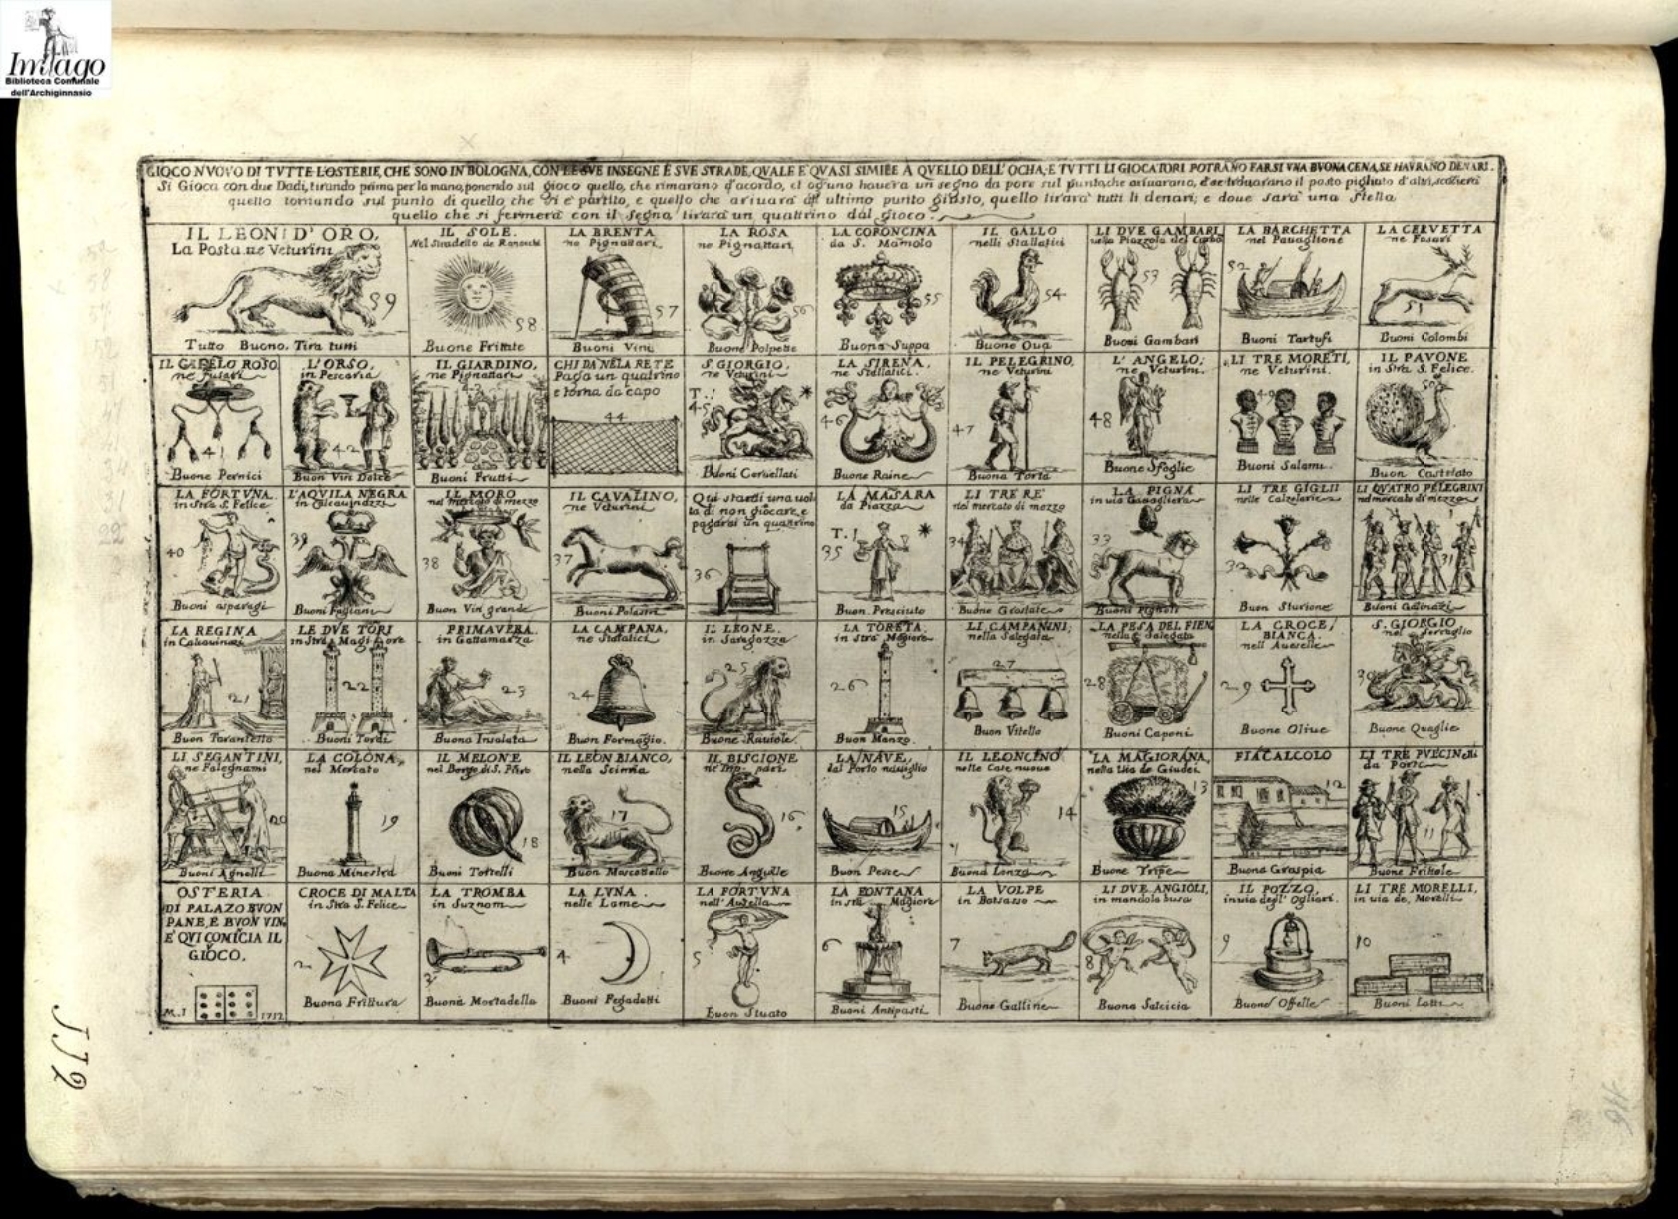 Imago
Biblioteca Comunale
dell'Archiginnasio
GIOCO NVOVO DI TVTTE L'OSTERIE, CHE SONO IN BOLOGNA, CON LE SVE INSEGNE E SVE STRADE, QVALE E' QVASI SIMILE A QVELLO DELL'OCHA, E TVTTI LI GIOCATORI POTRANO FARSI VNA BVONA CENA, SE HAVRANO DENARI.
Si Gioca con due Dadi, tirando prima per la mano, ponendo sul gioco quello, che rimarano d'acordo, et og'uno hauera un segno da pore sul punto, che ariuarano, e se trouarano il posto pigliato d'altri, scacierà
quello tornando sul punto di quello, che si è partito, e quello che ariuarà all' ultimo punto giusto, quello tirarà tutti li denari; e doue sarà una stella
quello che si fermerà con il segno, tirarà un quattrino dal gioco.
IL LEONE D'ORO,
La Posta ne Veturini
59
Tutto Buono, Tira tutti
IL SOLE.
Nel Stradello de
58
Buone Frittate
LA BRENTA
ne Pignattari
57
Buoni Vini
LA ROSA
ne Pignattari
56
Buone Polpette
LA CORONCINA
da S. Mamolo
55
Buona Suppa
IL GALLO
nelli Stallatici
54
Buone Oua
LI DVE GAMBARI
nella Piazzola del Corbo
53
Buoni Gambari
LA BARCHETTA
nel Pauaglione
52
Buoni Tartufi
LA CERVETTA
ne Fusari
51
Buoni Colombi
IL CAPELO ROSO,
ne Fusari
41
Buone Pernici
L'ORSO,
in Pescaria
42
Buon Vin Dolce
IL GIARDINO,
ne Pignattari
43
Buoni Frutti
CHI DA NELA RETE
Paga un quatrino
e torna da capo
44
S. GIORGIO,
ne Veturini
T.
45
Buoni Ceruellati
LA SIRENA,
ne Stallatici.
46
Buone Raine
IL PELEGRINO,
ne Veturini
47
Buona Torta
L' ANGELO;
ne Veturini.
48
Buone Sfoglie
LI TRE MORETI,
ne Veturini.
49
Buoni Salami.
IL PAVONE
in Stra S. Felice.
50
Buon Castrato
LA FORTVNA.
in Stra S. Felice
40
Buoni asparagi
L'AQVILA NEGRA
in Calcauinazzi
39
Buoni Fagiani
IL MORO
nel mercato di mezzo
38
Buon Vin grande
IL CAVALINO,
ne Veturini
37
Buoni Polastri
Qui starai una uol
ta di non giocare, e
pagarai un quattrino
36
LA MASARA
da Piazza
T.
35
Buon Presciuto
LI TRE RE'
nel mercato di mezzo
34
Buone Crostate
LA PIGNA
in uia
33
Buoni Pignoli
LI TRE GIGLII
nelle Calzolarie
32
Buon Sturione
LI QVATRO PELEGRINI
nel mercato di mezzo
31
Buoni
LA REGINA
in Calcauinazi
21
Buon Tarantello
LE DVE TORI
in Stra Magiore
22
Buoni Tordi
PRIMAVERA.
in Gattamarza
23
Buona Insalata
LA CAMPANA,
ne Stallatici
24
Buon Formagio.
IL LEONE.
in Saragozza
25
Buone Rauiole
LA TORETA.
in stra Magiore
26
Buon Manzo
LI CAMPANINI;
nella Salegata
27
Buon Vitello
LA PESA DEL FIEN,
nella Salegata
28
Buoni Caponi
LA CROCE,
BIANCA.
nell' Auesella
29
Buone Oliue
S. GIORGIO
nel Serraglio
30
Buone Quaglie
LI SEGANTINI,
ne Falegnami
20
Buoni Agnelli
LA COLONA,
nel Mercato
19
Buona Minestra
IL MELONE
nel Borgo di S. Pietro
18
Buoni Tortelli
IL LEON BIANCO,
nella Scimia
17
Buon Moscatello
IL BISCIONE
16
Buone Anguille
LA NAVE,
dal Porto nauiglio
15
Buon Pesce
IL LEONCINO
nelle Case nuoue
14
Buona Lonza
LA MAGIORANA,
nella Uia de Giudei
13
Buone Tripe
FIACALCOLO
12
Buona Graspia
LI TRE PVECINELI
da Porte
11
Buone Frittole
OSTERIA
DI PALAZO BVON
PANE, E BVON VIN,
E' QVI COMICIA IL
GIOCO.
M. I
1712
CROCE DI MALTA
in Stra S. Felice
2
Buona Frittura
LA TROMBA
in
Buona Mortadella
LA LVNA.
nelle Lame
4
Buoni Fegadetti
LA FORTVNA
nell' Auesella
5
Buon Stuato
LA FONTANA
in stra Magiore
6
Buoni Antipasti.
LA VOLPE
in Batsasso
7
Buone Galline
LI DVE ANGIOLI,
in mandola busa
8
Buona Salcicia
IL POZZO,
in uia degl' Ogliari.
9
Buone Offelle
LI TRE MORELLI,
in uia de, Morelli
10
Buoni Lotti
552